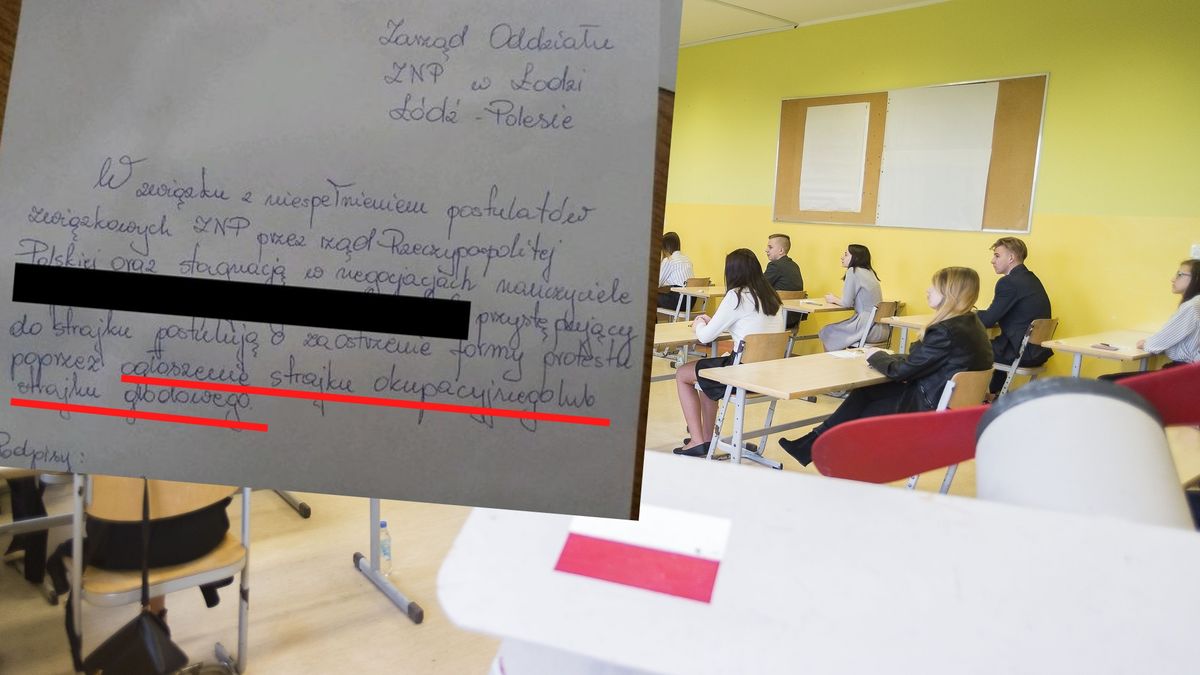 Zarząd Oddziału
ZNP w Łodzi
Łódź - Polesie
W związku z niespełnieniem postulatów
związkowych ZNP przez rząd Rzeczypospolitej
Polskiej oraz stagnacją w negocjacjach nauczyciele
przystępujący
do strajku postulują o zaostrzenie formy protestu
poprzez ogłoszenie strajku okupacyjnego lub
strajku głodowego.
Podpisy: